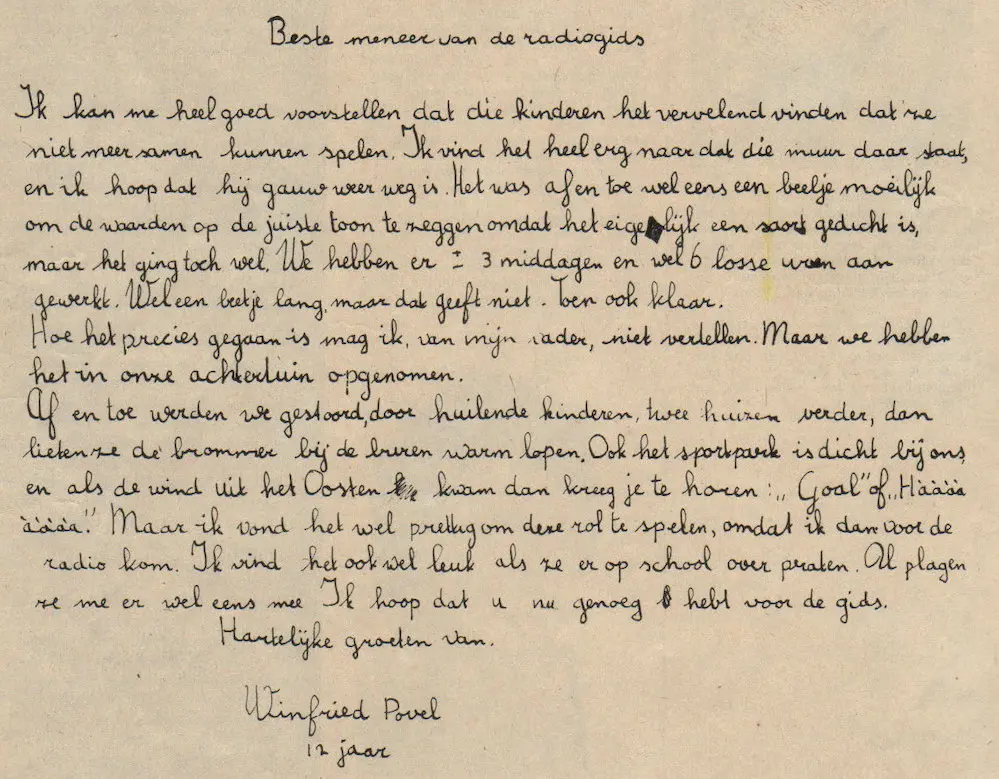 Beste meneer van de radiogids
Ik kan me heel goed voorstellen dat die kinderen het vervelend vinden dat ze
niet meer samen kunnen spelen. Ik vind het heel erg naar dat die muur daar staat,
en ik hoop dat hij gauw weer weg is. Het was af en toe wel eens een beetje moeilijk
om de woorden op de juiste toon te zeggen omdat het eigenlijk een soort gedicht is,
maar het ging toch wel. We hebben er ± 3 middagen en wel 6 losse uren aan
gewerkt. Wel een beetje lang, maar dat geeft niet. Toen ook klaar.
Hoe het precies gegaan is mag ik, van mijn vader, niet vertellen. Maar we hebben
het in onze achtertuin opgenomen.
Af en toe werden we gestoord, door huilende kinderen, twee huizen verder, dan
lieten ze de brommer bij de buren warm lopen. Ook het sportpark is dicht bij ons,
en als de wind uit het Oosten kwam dan kreeg je te horen: „Goal" of „Hàààà
àààaa." Maar ik vond het wel prettig om deze rol te spelen, omdat ik dan voor de
radio kom. Ik vind het ook wel leuk als ze er op school over praten. Al plagen
ze me er wel eens mee Ik hoop dat u nu genoeg hebt voor de gids.
Hartelijke groeten van.
Winfried Povel
12 jaar